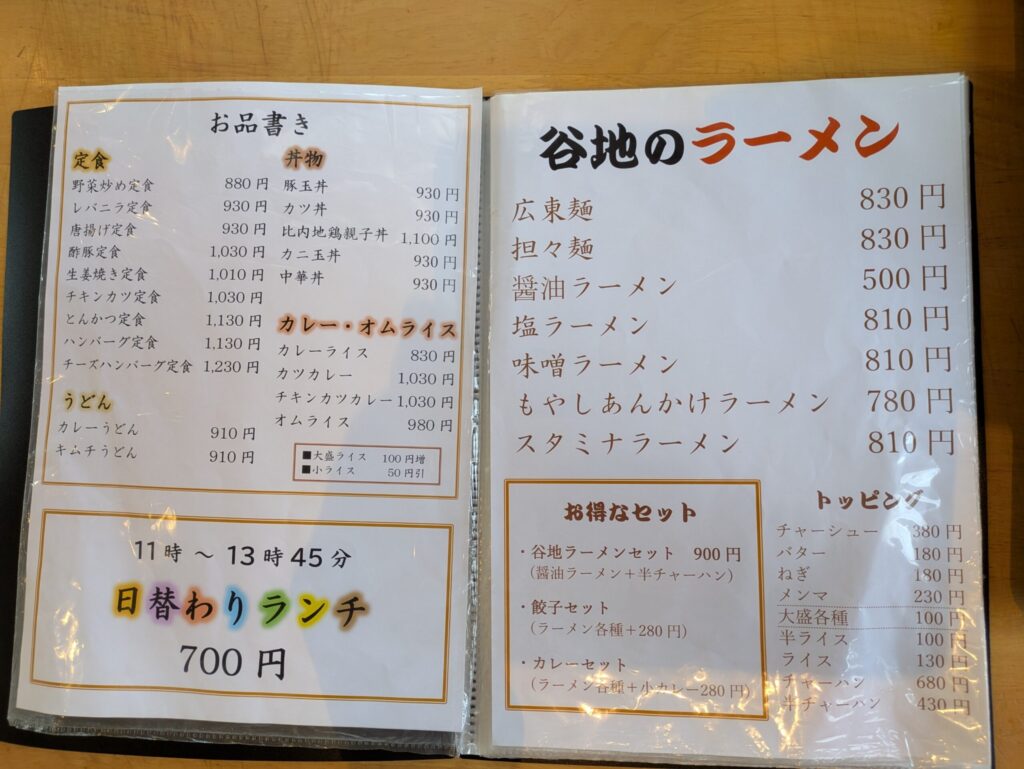 お品書き
定食
野菜炒め定食 880円
レバニラ定食 930円
唐揚げ定食 930円
酢豚定食 1,030円
生姜焼き定食 1,010円
チキンカツ定食 1,030円
とんかつ定食 1,130円
ハンバーグ定食 1,130円
チーズハンバーグ定食 1,230円
うどん
カレーうどん 910円
キムチうどん 910円
丼物
豚玉丼 930円
カツ丼 930円
比内地鶏親子丼 1,100円
カニ玉丼 930円
中華丼 930円
カレー・オムライス
カレーライス 830円
カツカレー 1,030円
チキンカツカレー 1,030円
オムライス 980円
■大盛ライス 100円増
■小ライス 50円引
11時 ～ 13時45分
日替わりランチ
700円
谷地のラーメン
広東麺 830円
担々麺 830円
醤油ラーメン 500円
塩ラーメン 810円
味噌ラーメン 810円
もやしあんかけラーメン 780円
スタミナラーメン 810円
お得なセット
・谷地ラーメンセット 900円
（醤油ラーメン＋半チャーハン）
・餃子セット
（ラーメン各種＋280円）
・カレーセット
（ラーメン各種＋小カレー280円）
トッピング
チャーシュー 380円
バター 180円
ねぎ 180円
メンマ 230円
大盛各種 100円
半ライス 100円
ライス 130円
チャーハン 680円
半チャーハン 430円